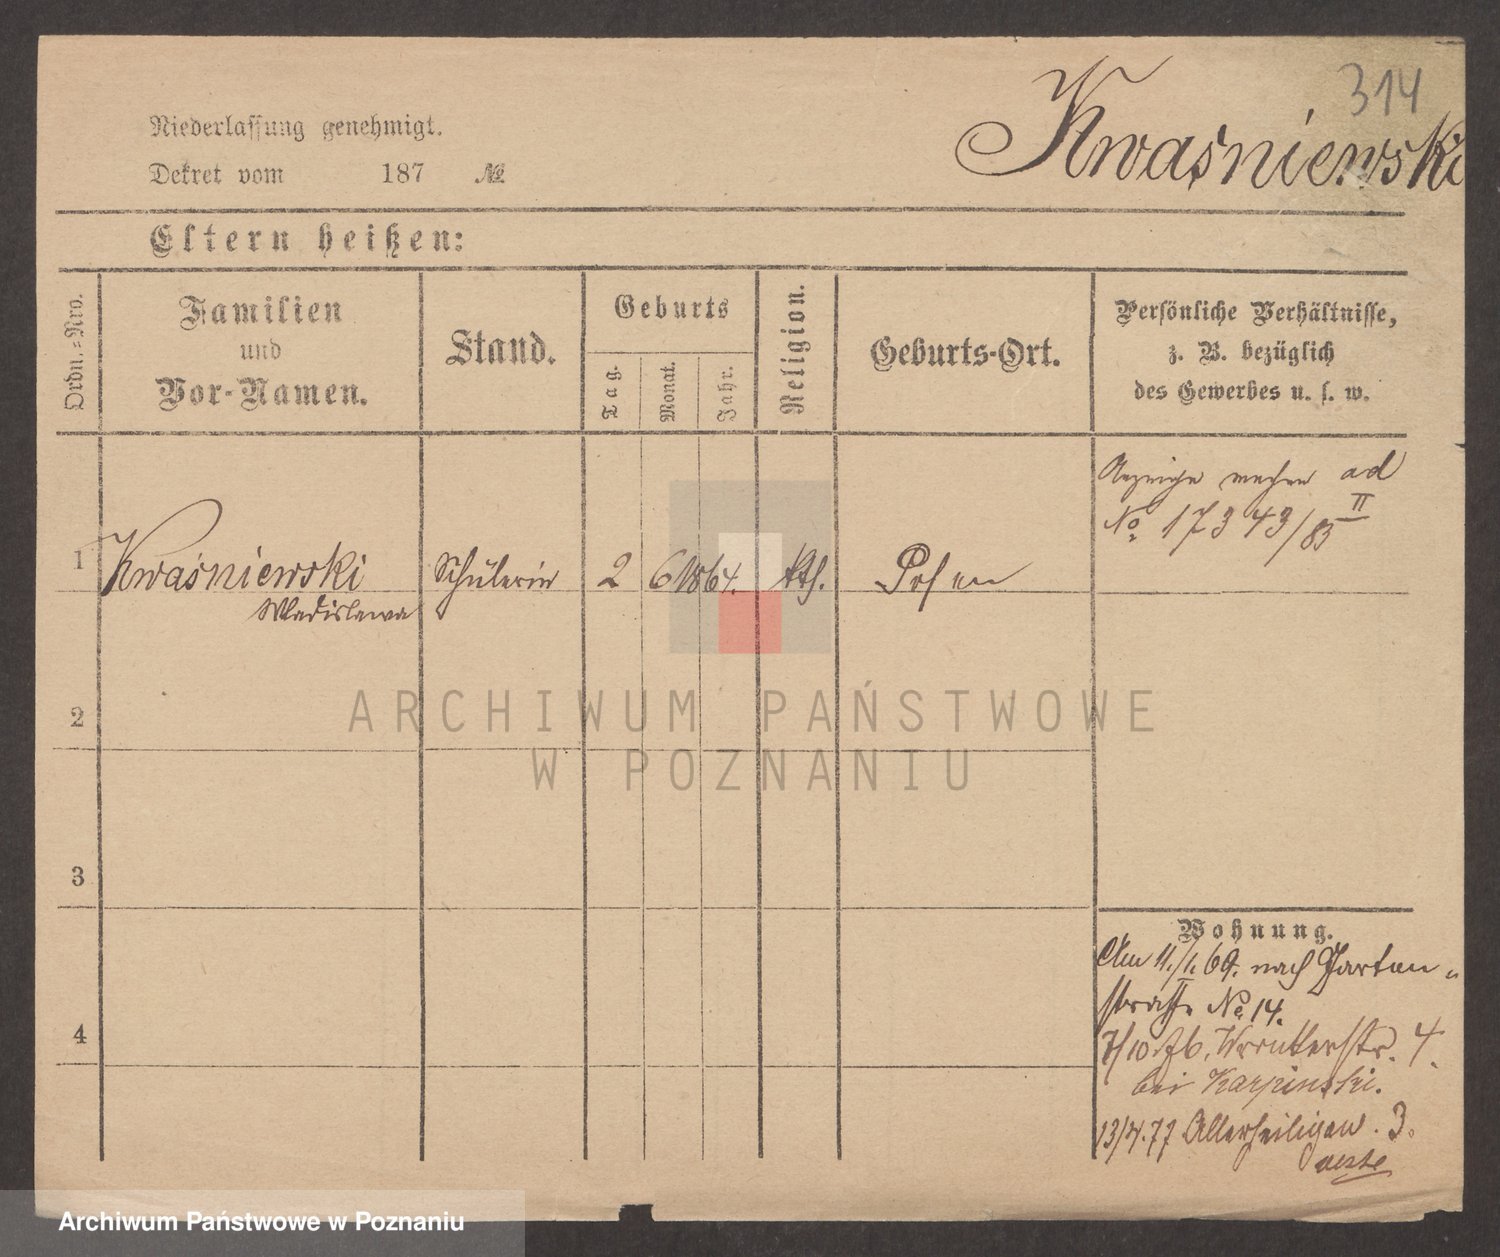 314
Kwaśniewski
Niederlassung genehmigt.
Dekret vom 187 №
Eltern heißen:
Ordn.=Nro.
Familien
und
Vor-Namen.
Stand.
Geburts
Tag.
Monat.
Jahr.
Religion.
Geburts-Ort.
Persönliche Verhältnisse,
z. B. bezüglich
des Gewerbes u. s. w.
Anzeige machen ad
II
No. 17343/83
1 Kwaśniewski Schülerin 2 6 1864. kth. Posen
Wladislawa
2
3
4
Wohnung.
Am 11./I. 69. nach Garten-
straße No. 14.
7/10 76. 4.
bei Karpinski.
13/4.77 Allerheiligen. 3.
ARCHIWUM PAŃSTWOWE
W POZNANIU
Archiwum Państwowe w Poznaniu